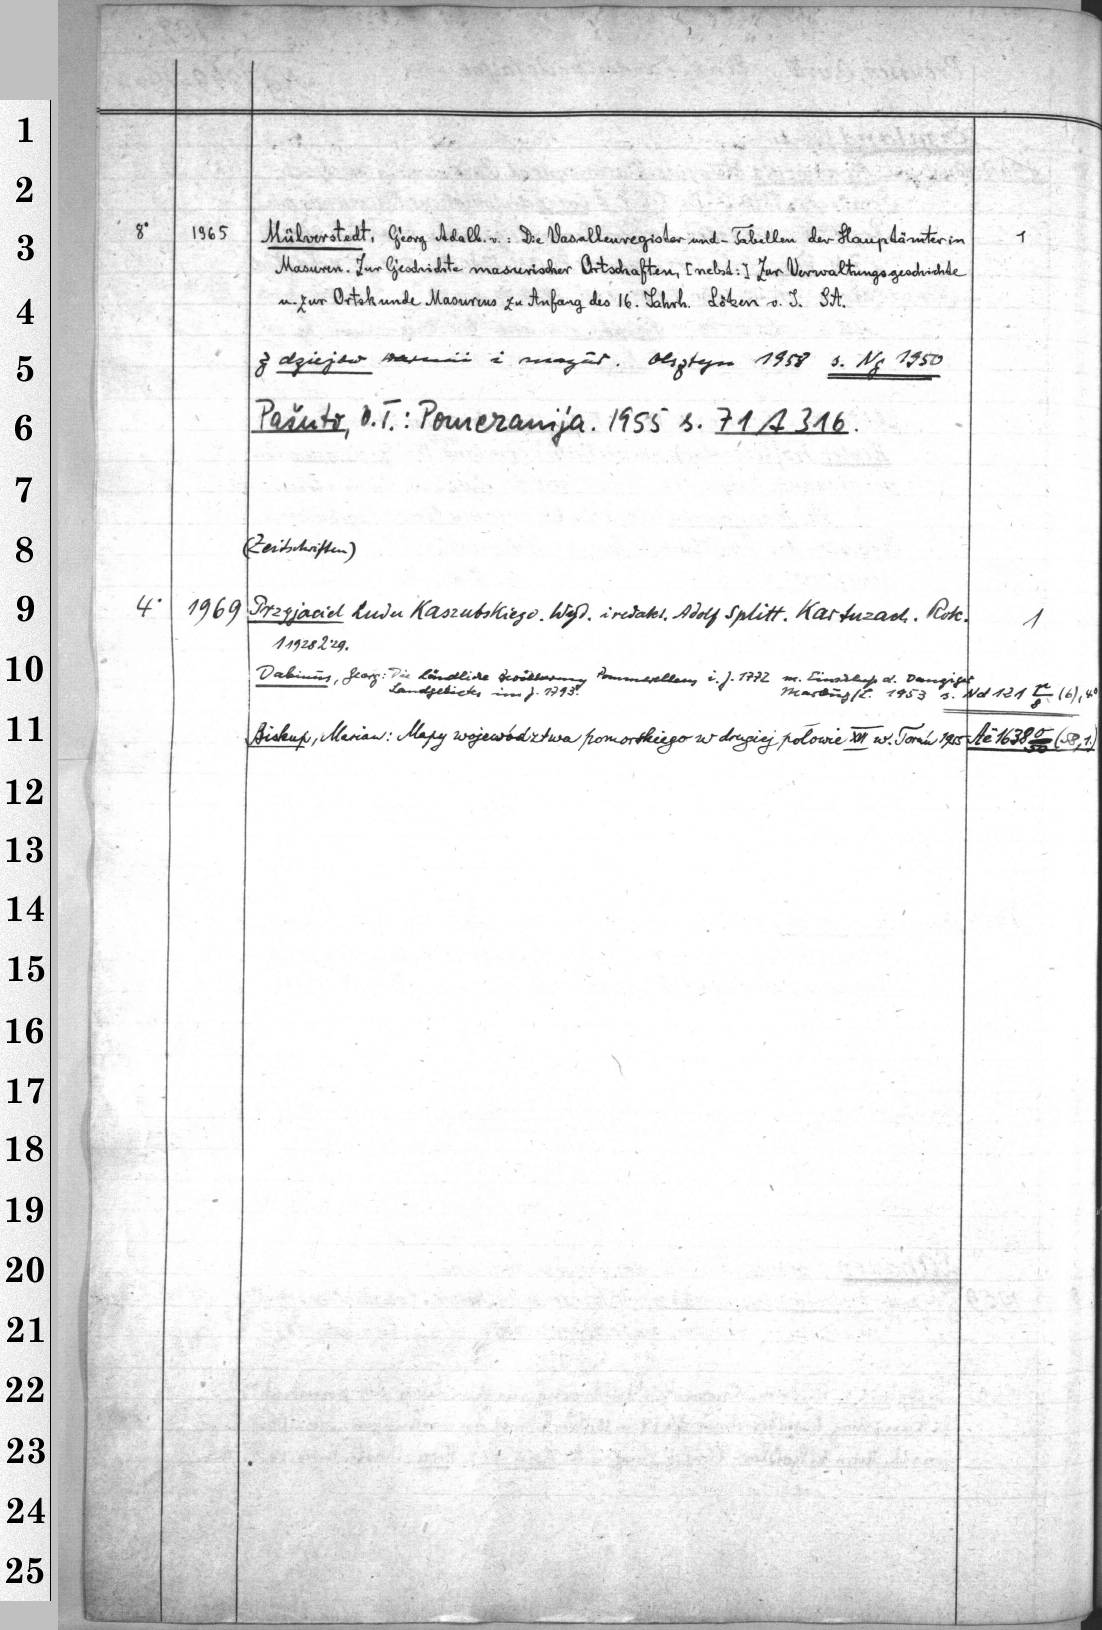 1
2
3
4
5
6
7
8
9
10
11
12
13
14
15
16
17
18
19
20
21
22
23
24
25
8° 1965 Mülverstedt, Georg Adalb. v.: Die Vasallenregister und-Tabellen der Hauptämter in 1
Masuren. Zur Geschichte masurischer Ortschaften, [nebst:] Zur Verwaltungsgeschichte
u. zur Ortskunde Masurens zu Anfang des 16. Jahrh. Lötzen o. J. SA.
Z dziejów warmii i mazur. Olsztyn 1958 s. Ng 1950
Pašuto, V.T.: Pomeranija. 1955 s. 71 A 316.
(Zeitschriften)
4° 1969 Przyjaciel Ludu Kaszubskiego. Wyd. i redakt. Adolf Splitt. Kartuzach. Rok. 1
1 1928 2 29.
Dabinus, Georg: Die ländliche Bevölkerung Pommerellens i. J. 1772 m. Einschluß d. Danziger
Landgebietes im J. 1793. Marburg/L. 1953 s. Nd 121 (6), 4°
Biskup, Marian: Mapy województwa pomorskiego w drugiej połowie XVI w. Toruń 1955 Ae 1638 (58,1)